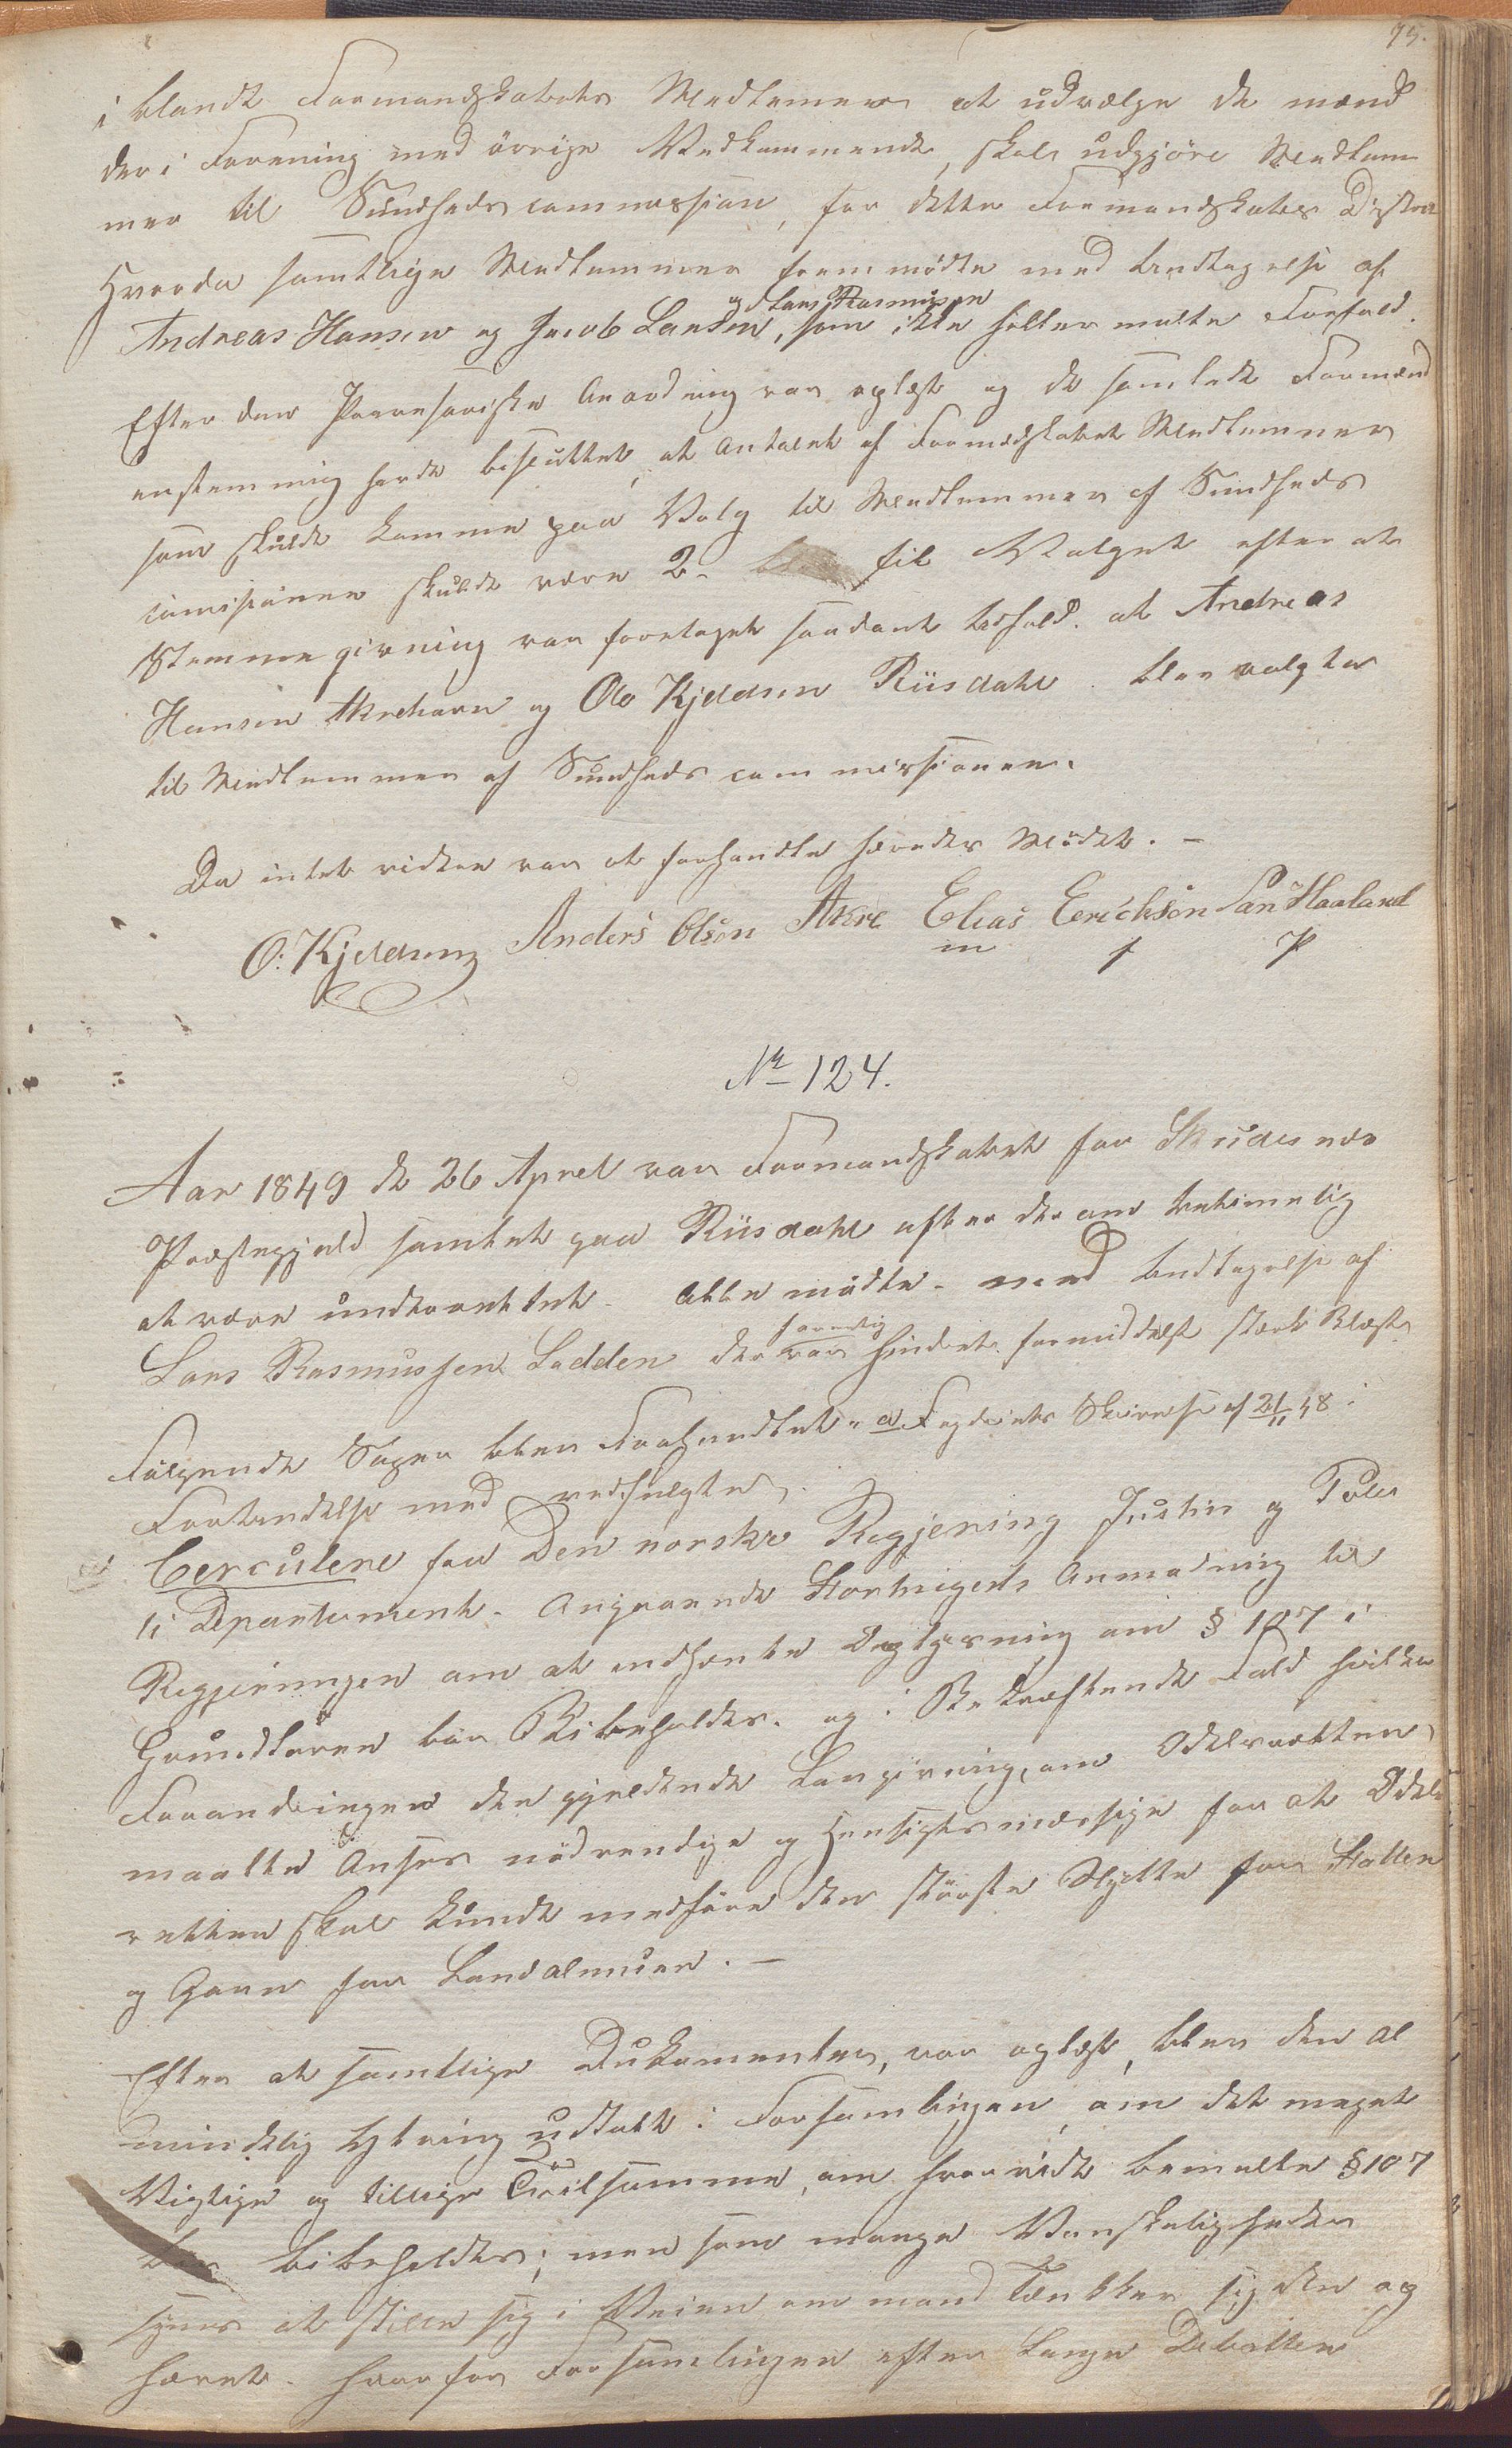 75.
i blandt Formandskabets Medlemer at udvælge de mænd
der i Forening med övrige Vedkommende, skal udgjöre Medlem
mer til Sundheds commission, for dette Formandskabs Distrikt
Hvorda samtlige Medlemmer fremmödte med undtagelse af
og Lars Rasmusen
Andreas Hansen og Jacob Larsen, som ikke heller meldte Forfald.
Efter den Provisoriske Anordning var oplæst og de samlede Formænd
enstemmig havde besluttet, at Antalet af Formandskabet Medlemmer
som skulde komme paa Valg til Medlemmer af Sundheds
comisionen skulde være 2. til Valget efter at
Stemmegivning var foretaget saadant udfald. at Andreas
Hansen Akrehavn og Ole Kjeldsen Riisdahl blev valgte
til Medlemmer af Sundheds commissionen.
Da intet videre var at forhandle hævedes Mödet. -
O: Kjeldsen Anders Olsen Akre Elias Eericksön San Haaland
m f P
No 124.
Aar 1849 de 26 Aprel var Formandskabet for Skudesnæs
Præstegjeld samlet paa Riisdahl efter derom betimelig
at være underrettet. Alle mödte. med undtagelse af
Lars Rasmussen Ladden der var hindret formiddelst stærk Blæst
Fölgende Sager blev Forhandlet. a Fogderiets Skrivelse af 21/11 48 i
Forbindelse med vedfulgte
Cerculere fra Den norske Regjering Justis og Poli
ti Departement. Angaaende Storthingets Anmodning til
Regjeringen om at indhente Oplysning om § 107 i
Grundloven bör Bibeholdes. og i Bekræftende Fald hvilke
Forandringer den gjeldende Lovgivning, om Odelsretten
maatte Anses nödvendige og Hensigtsmæssige for at Odels
retten skal kunde medföre den störste Nytte for Staten
og Gavn for Landalmuen. -
Efter at samtlige Dukomenter, var oplæst, blev den al
mindelig Ytring udtalt i Forsamlingen, om det meget
Vigtige og tillige Tvilsomme, om hvorvidt bemeldte § 107
bör bibeholdes; men som mange Vanskeligheder
synes at stille sig i Veien om mand Tænkker sig den op
hævet. hvorfor Forsamlingen efter Lange Debatter